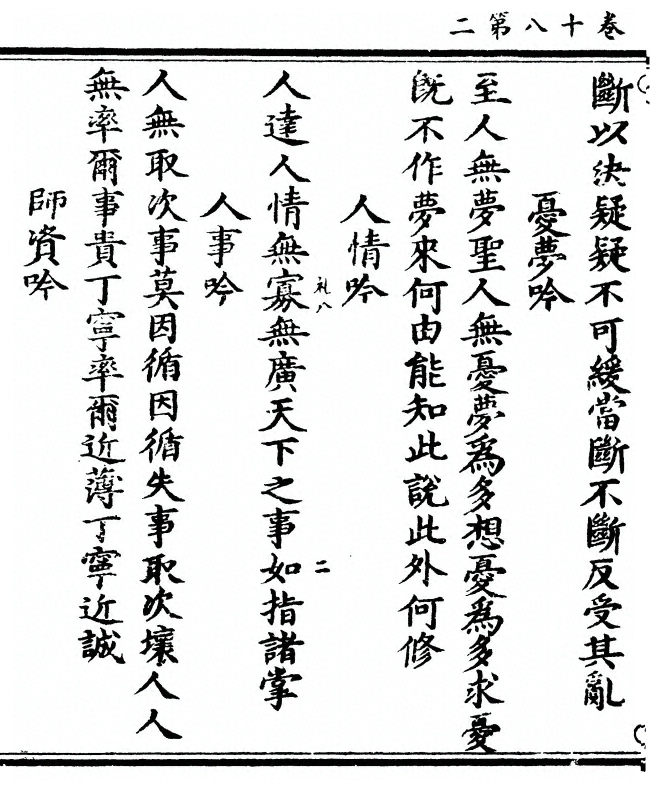 卷十八第二
斷以决疑疑不可緩當斷不斷反受其亂
憂夢吟
至人無夢聖人無憂夢爲多想憂爲多求憂
旣不作夢來何由能知此說此外何修
人情吟
人達人情無寡無廣天下之事如指諸掌
礼八
二
人事吟
人無取次事莫因循因循失事取次壞人人
無率爾事貴丁寧率爾近薄丁寧近誠
師資吟